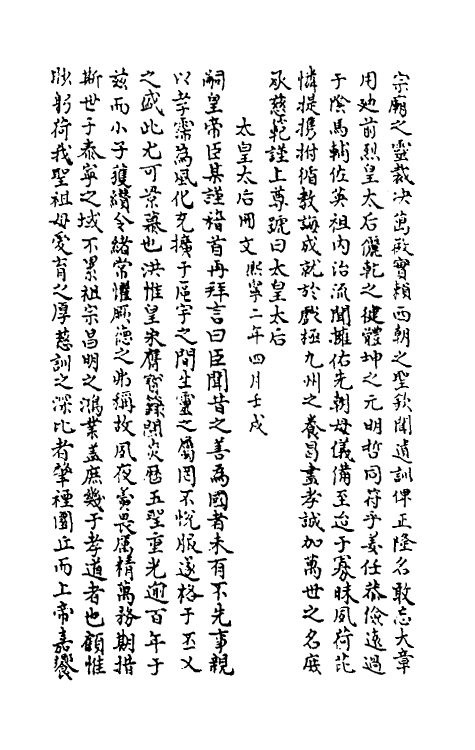 宗廟之靈裁决萬政實賴西朝之聖欽聞遺訓俾正隆名敢忘大章
用廸前烈皇太后儷乾之健體坤之元明哲同符乎姜任恭儉遠過
于陰馬輔佐英祖内治流聞擁佑先朝母儀備至迨于寡昧夙荷茈
憐提携拊循教誨成就於戲極九州之養曷盡孝誠加萬世之名庶
承慈範謹上尊號曰太皇太后
太皇太后冊文熙寧二年四月壬戌
嗣皇帝臣某謹稽首再拜言曰臣聞昔之善為國者未有不先事親
以孝霈為風化充擴于區宇之間生靈之屬罔不悅服遂格于丕乂
之盛此尤可景慕也洪惟皇宋膺寳籙開炎曆五聖重光逾百年于
兹而小子獲纘令緒常懼厥德之弗彌故夙夜寅畏厲精萬務期措
斯世于泰寧之域不累祖宗昌明之鴻業蓋庶幾于孝道者也顧惟
眇躬荷我聖祖母愛育之厚慈訓之深比者肇禋圜丘而上帝嘉饗